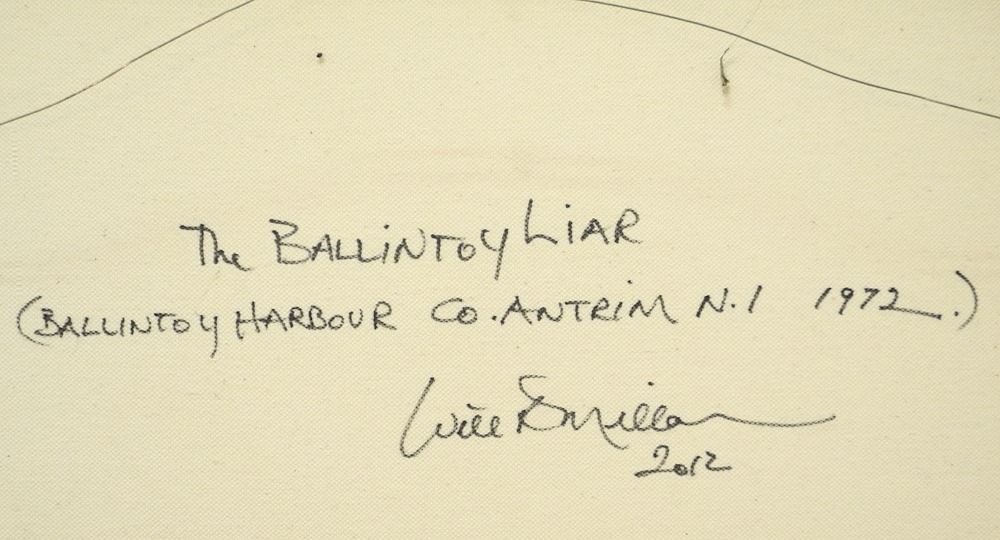 The BALLINTOY LIAR
(BALLINTOY HARBOUR CO. ANTRIM N.I 1972.)
Will
2012